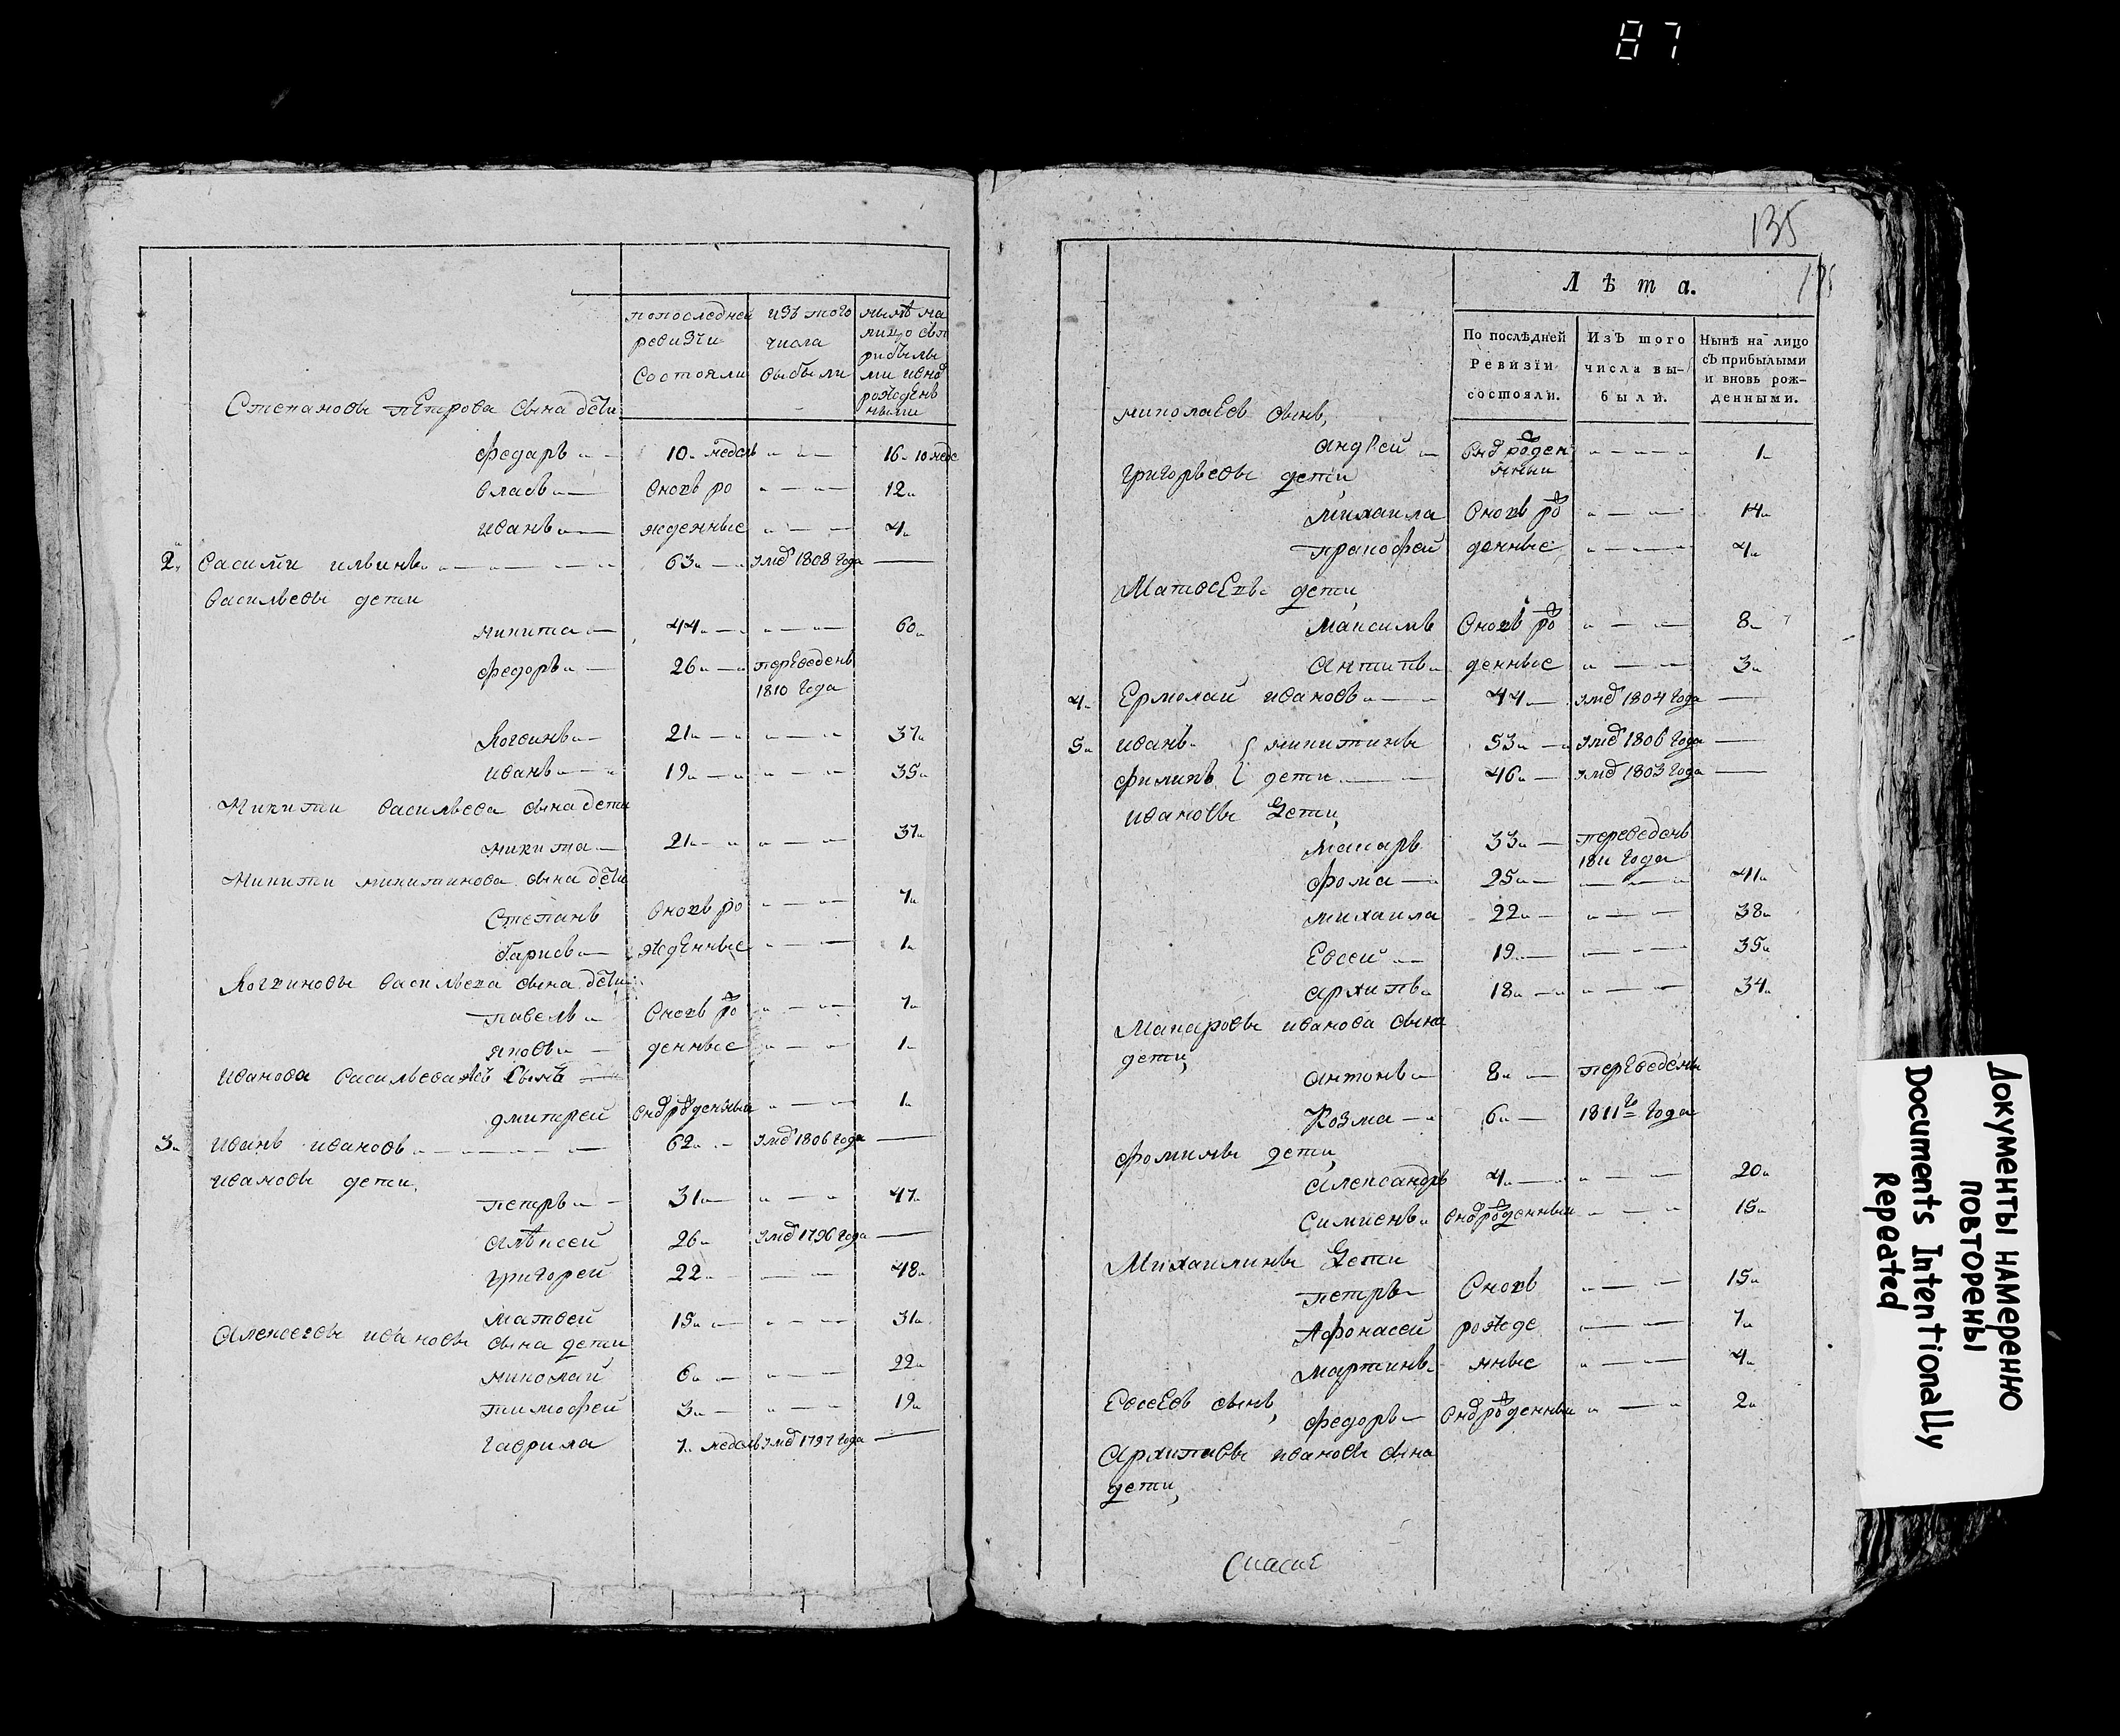 87
попоследней ревизии состояли
изъ того числа выбыли
нынѣ на лицо съ прибылыми ивновь рожденными
Степановы петрова сына дети
федаръ 10 недель 16 10 неде
власъ вновъ ро 12
иванъ жденные 4
2 Василий ильинъ 63 умеръ 1808 года
Васильевы дети
никита 44 60
федоръ 26 переведенъ
1810 года
Логвинъ 21 37
иванъ 19 35
Никиты васильева сына дети
никита 21 37
Никиты никитинова сына дети
Степанъ вновъ ро 7
барисъ жденные 1
Логвиновы васильева сына дети
павелъ вновъ ро 7
яковъ денные 1
Иванова васильева сынъ
дмитрей вновь рожденный 1
3 Иванъ ивановъ 62 умеръ 1806 года
ивановы дети
петръ 31 47
алѣксей 26 умеръ 1796 года
григорей 22 48
матвей 15 31
Алексеевы ивановы сына дети
николай 6 22
тимофей 3 19
гаврила 7 недель умеръ 1797 года
135
Лѣта.
По послѣдней Ревизїи состояли.
Изъ того числа выбыли.
Нынѣ на лицо съ прибылыми и вновь рожденными.
николаевъ сынъ,
андрей вновь рожден 1
нный
григорьевы дети,
михаила вновъ ро 14
пракофей денные 4
Матвеевы дети,
максимъ вновъ ро 8
антипъ денные 3
4 Ермолай ивановъ 44 умеръ 1804 года
5 иванъ { никитины 53 умеръ 1806 года
филипъ { дети 46 умеръ 1803 года
ивановы дети,
макаръ 33 переведенъ
1811 года
фома 25 41
михаила 22 38
Евсей 19 35
архипъ 18 34
Макаровы иванова сына
дети,
антонъ 8 переведены
Козма 6 1811го года
фомины дети,
александръ 4 20
Симионъ вновь рожденный 15
Михаилины дети
петръ вновъ 15
Афонасей рожде 7
мартинъ нные 4
Евсеевъ сынъ,
федоръ вновь рожденный 2
Архиповы ивановы сына
дети,
Документы намеренно
повторены
Documents Intentionally
Repeated